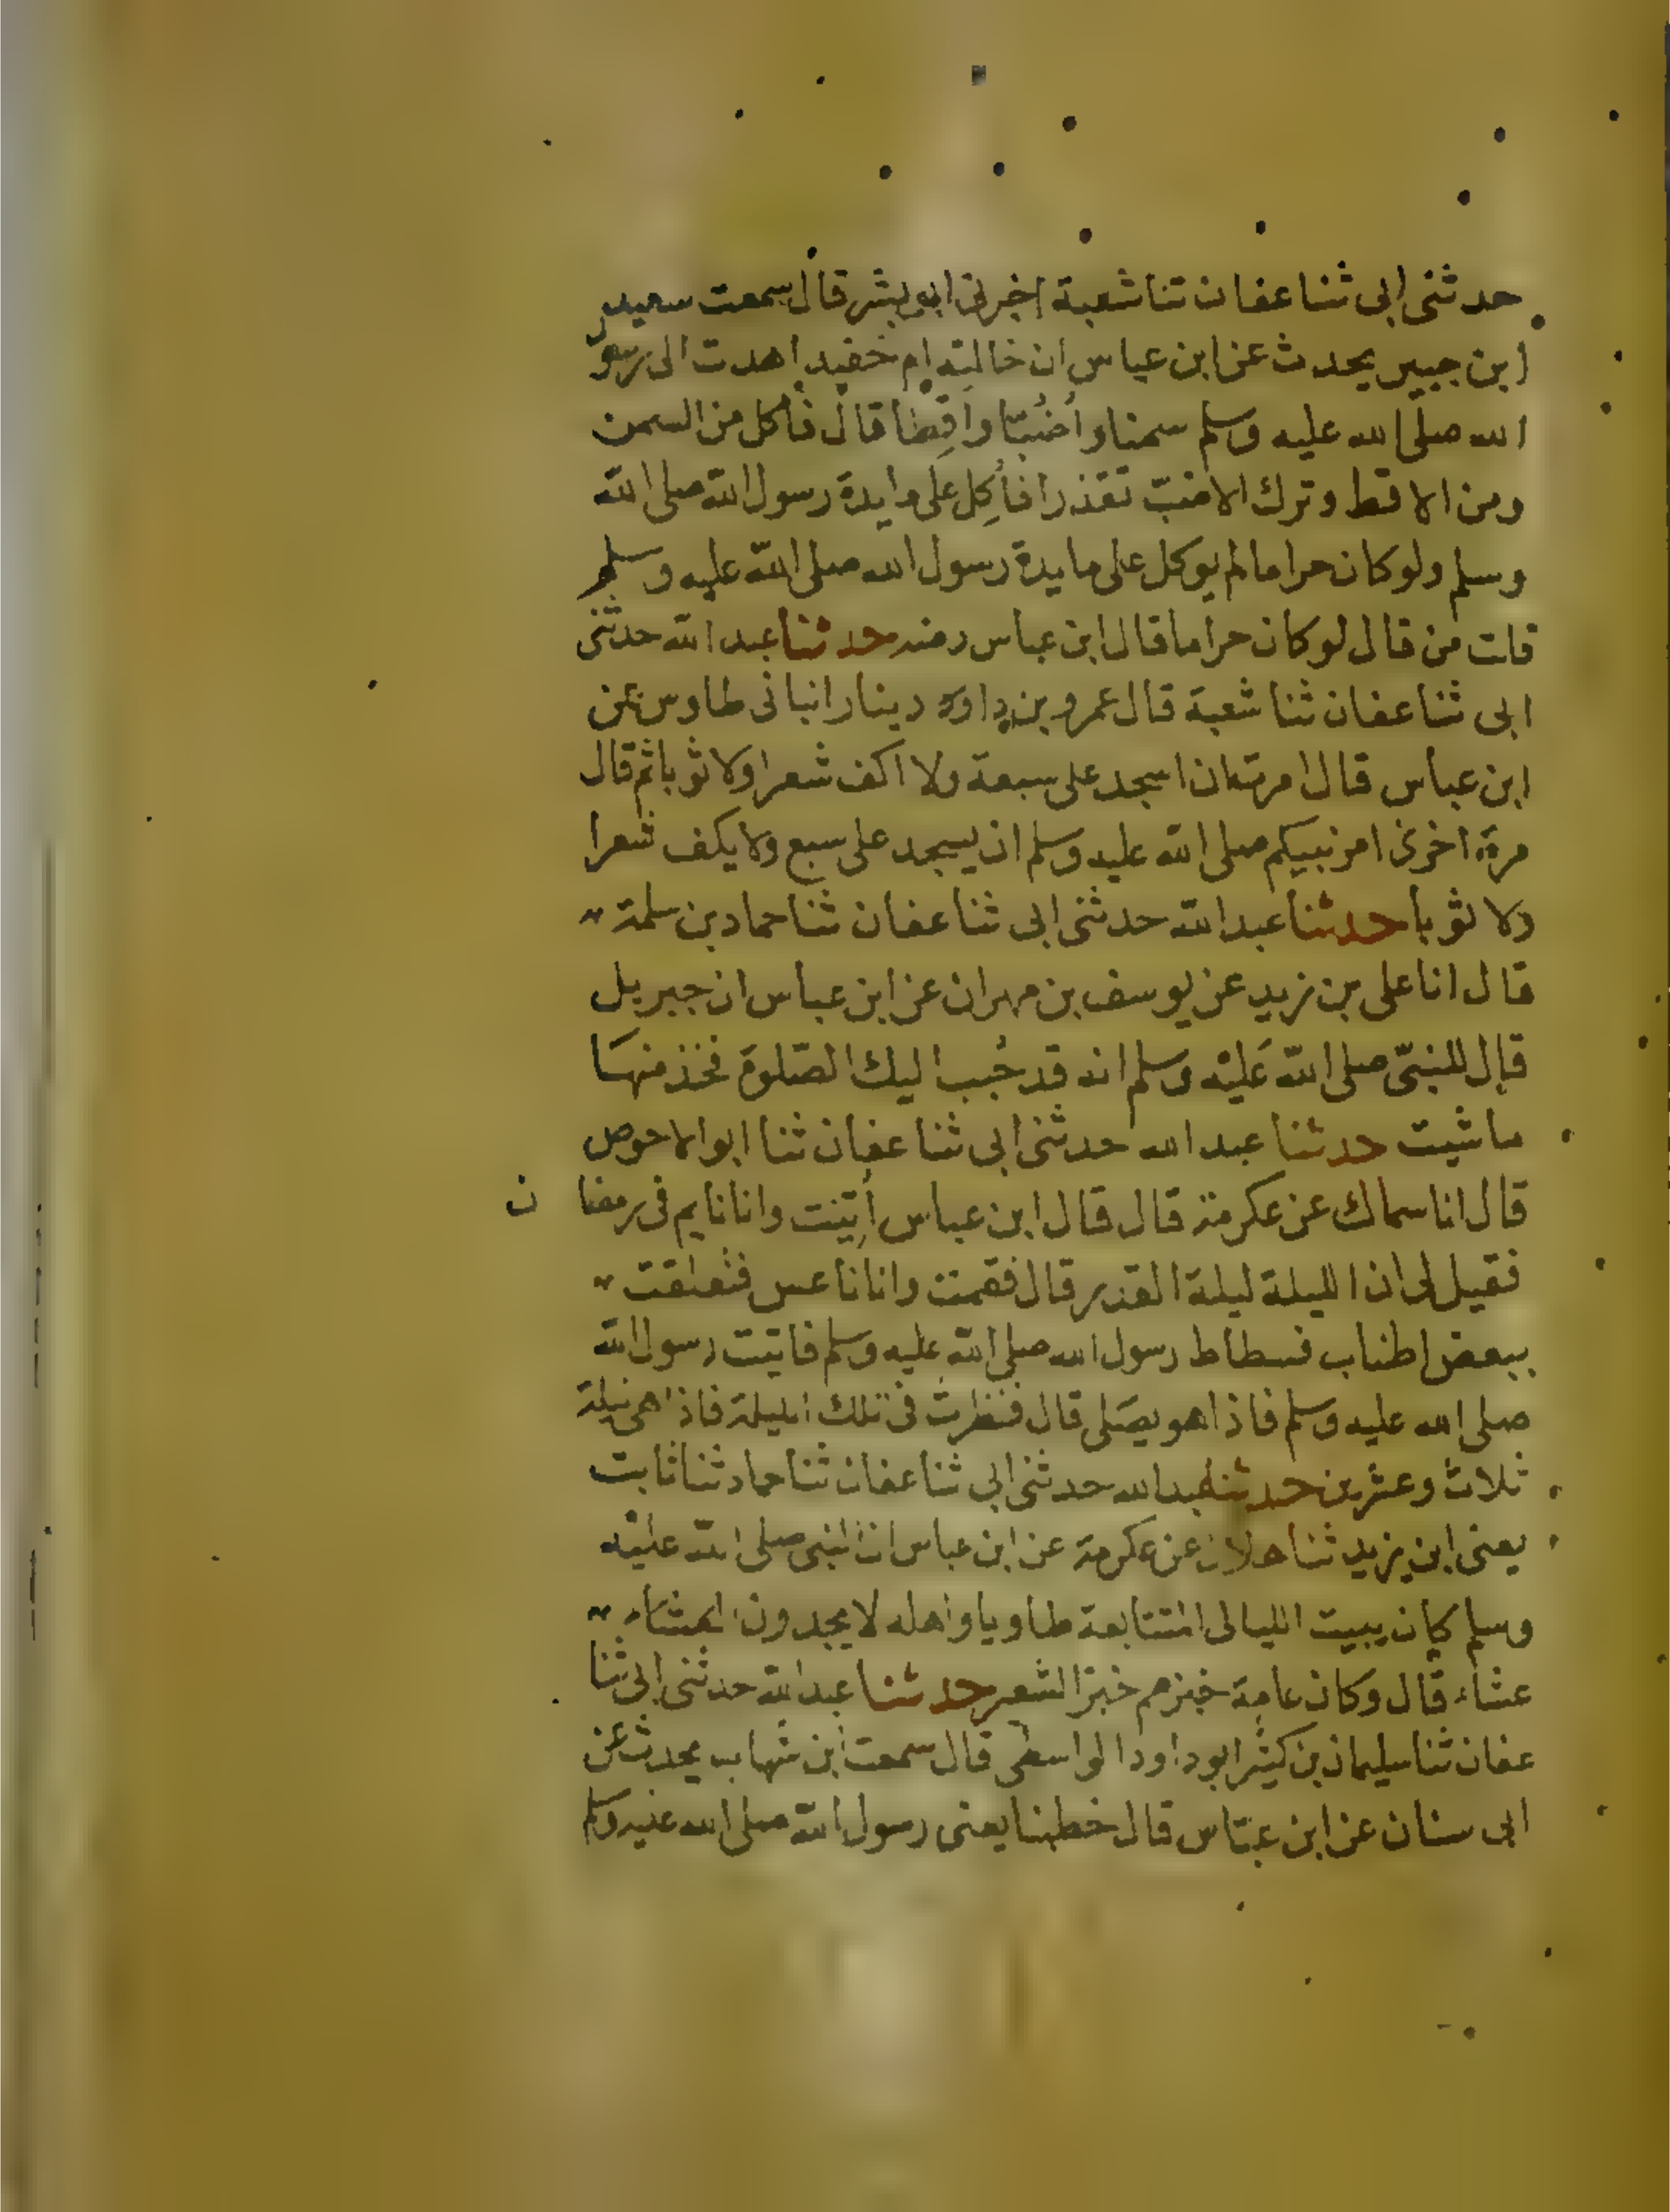 حدثنى ابى ثنا عفان ثنا شعبة اخبرنى ابو بشر قال سمعت سعيد
ابن جبير يحدث عن ابن عباس ان خالته ام حفيد اهدت الى رسول
الله صلى الله عليه وسلم سمنا وأضُبّا واَقِطا قال فأكل من السمن
ومن الاقط وترك الاضبّ تقذرا فأُكِل على مايدة رسول الله صلى الله
وسلم ولو كان حراما لم يوكل على مايدة رسول الله صلى الله عليه وسلم
قلت من قال لو كان حراما قال ابن عباس حدثنا عبد الله حدثنى
ابى ثنا عفان ثنا شعبة قال عمرو بن دينار انبانى طاوس عن
ابن عباس قال امرت ان اسجد على سبعة ولا اكف شعرا ولا ثوبا ثم قال
مرة اخرى امر نبيكم صلى الله عليه وسلم ان يسجد على سبع ولا يكف شعرا
ولا ثوبا حدثنا عبد الله حدثنى ابى ثنا عفان ثنا حماد بن سلمة
قال انا على بن زيد عن يوسف بن مهران عن ابن عباس ان جبريل
قال للنبىّ صلى الله عَليْه وسلم انه قد حُبب اليك الصّلوة فخذ منهَا
ما شيت حدثنا عبد الله حدثنى ابى ثنا عفان ثنا ابو الاحوص
قال انا سماك عن عكرمة قال قال ابن عباس أُتِيت وانا نايم فى رمضان
فقيل لى ان الليلة ليلة القدر قال فقمت وانا ناعس فتعلقت
ببعض اطناب فسطاط رسول الله صلى الله عليه وسلم فاتيت رسول الله
صلى الله عليه وسلم فاذا هو يصَلى قال فنظرت فى تلك الليلة فاذا هى ليلة
ثلاث وعشرين حدثنا عبد الله حدثنى ابى ثنا عفان ثنا حماد ثنا ثابت
يعنى ابن يزيد ثنا هلال عن عكرمة عن ابن عباس ان النبى صلى الله عليْه
وسلم كان يبيت الليالى المتتابعة طاويا واهله لا يجدون العشاء
عشاء قال وكان عامة خبزهم خبز الشعير حدثنا عبد الله حدثنى ابى ثنا
عفان ثنا سليمان بن كثير ابو داود الواسطى قال سمعت ابن شهاب يحدث عن
ابى سنان عن ابن عبّاس قال خطبنا يعنى رسول الله صلى الله عليه وسلم